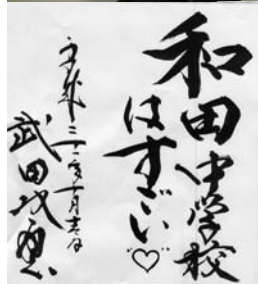 和田中学校
はすごい♡
平成二十一年十月吉日
武田双雲